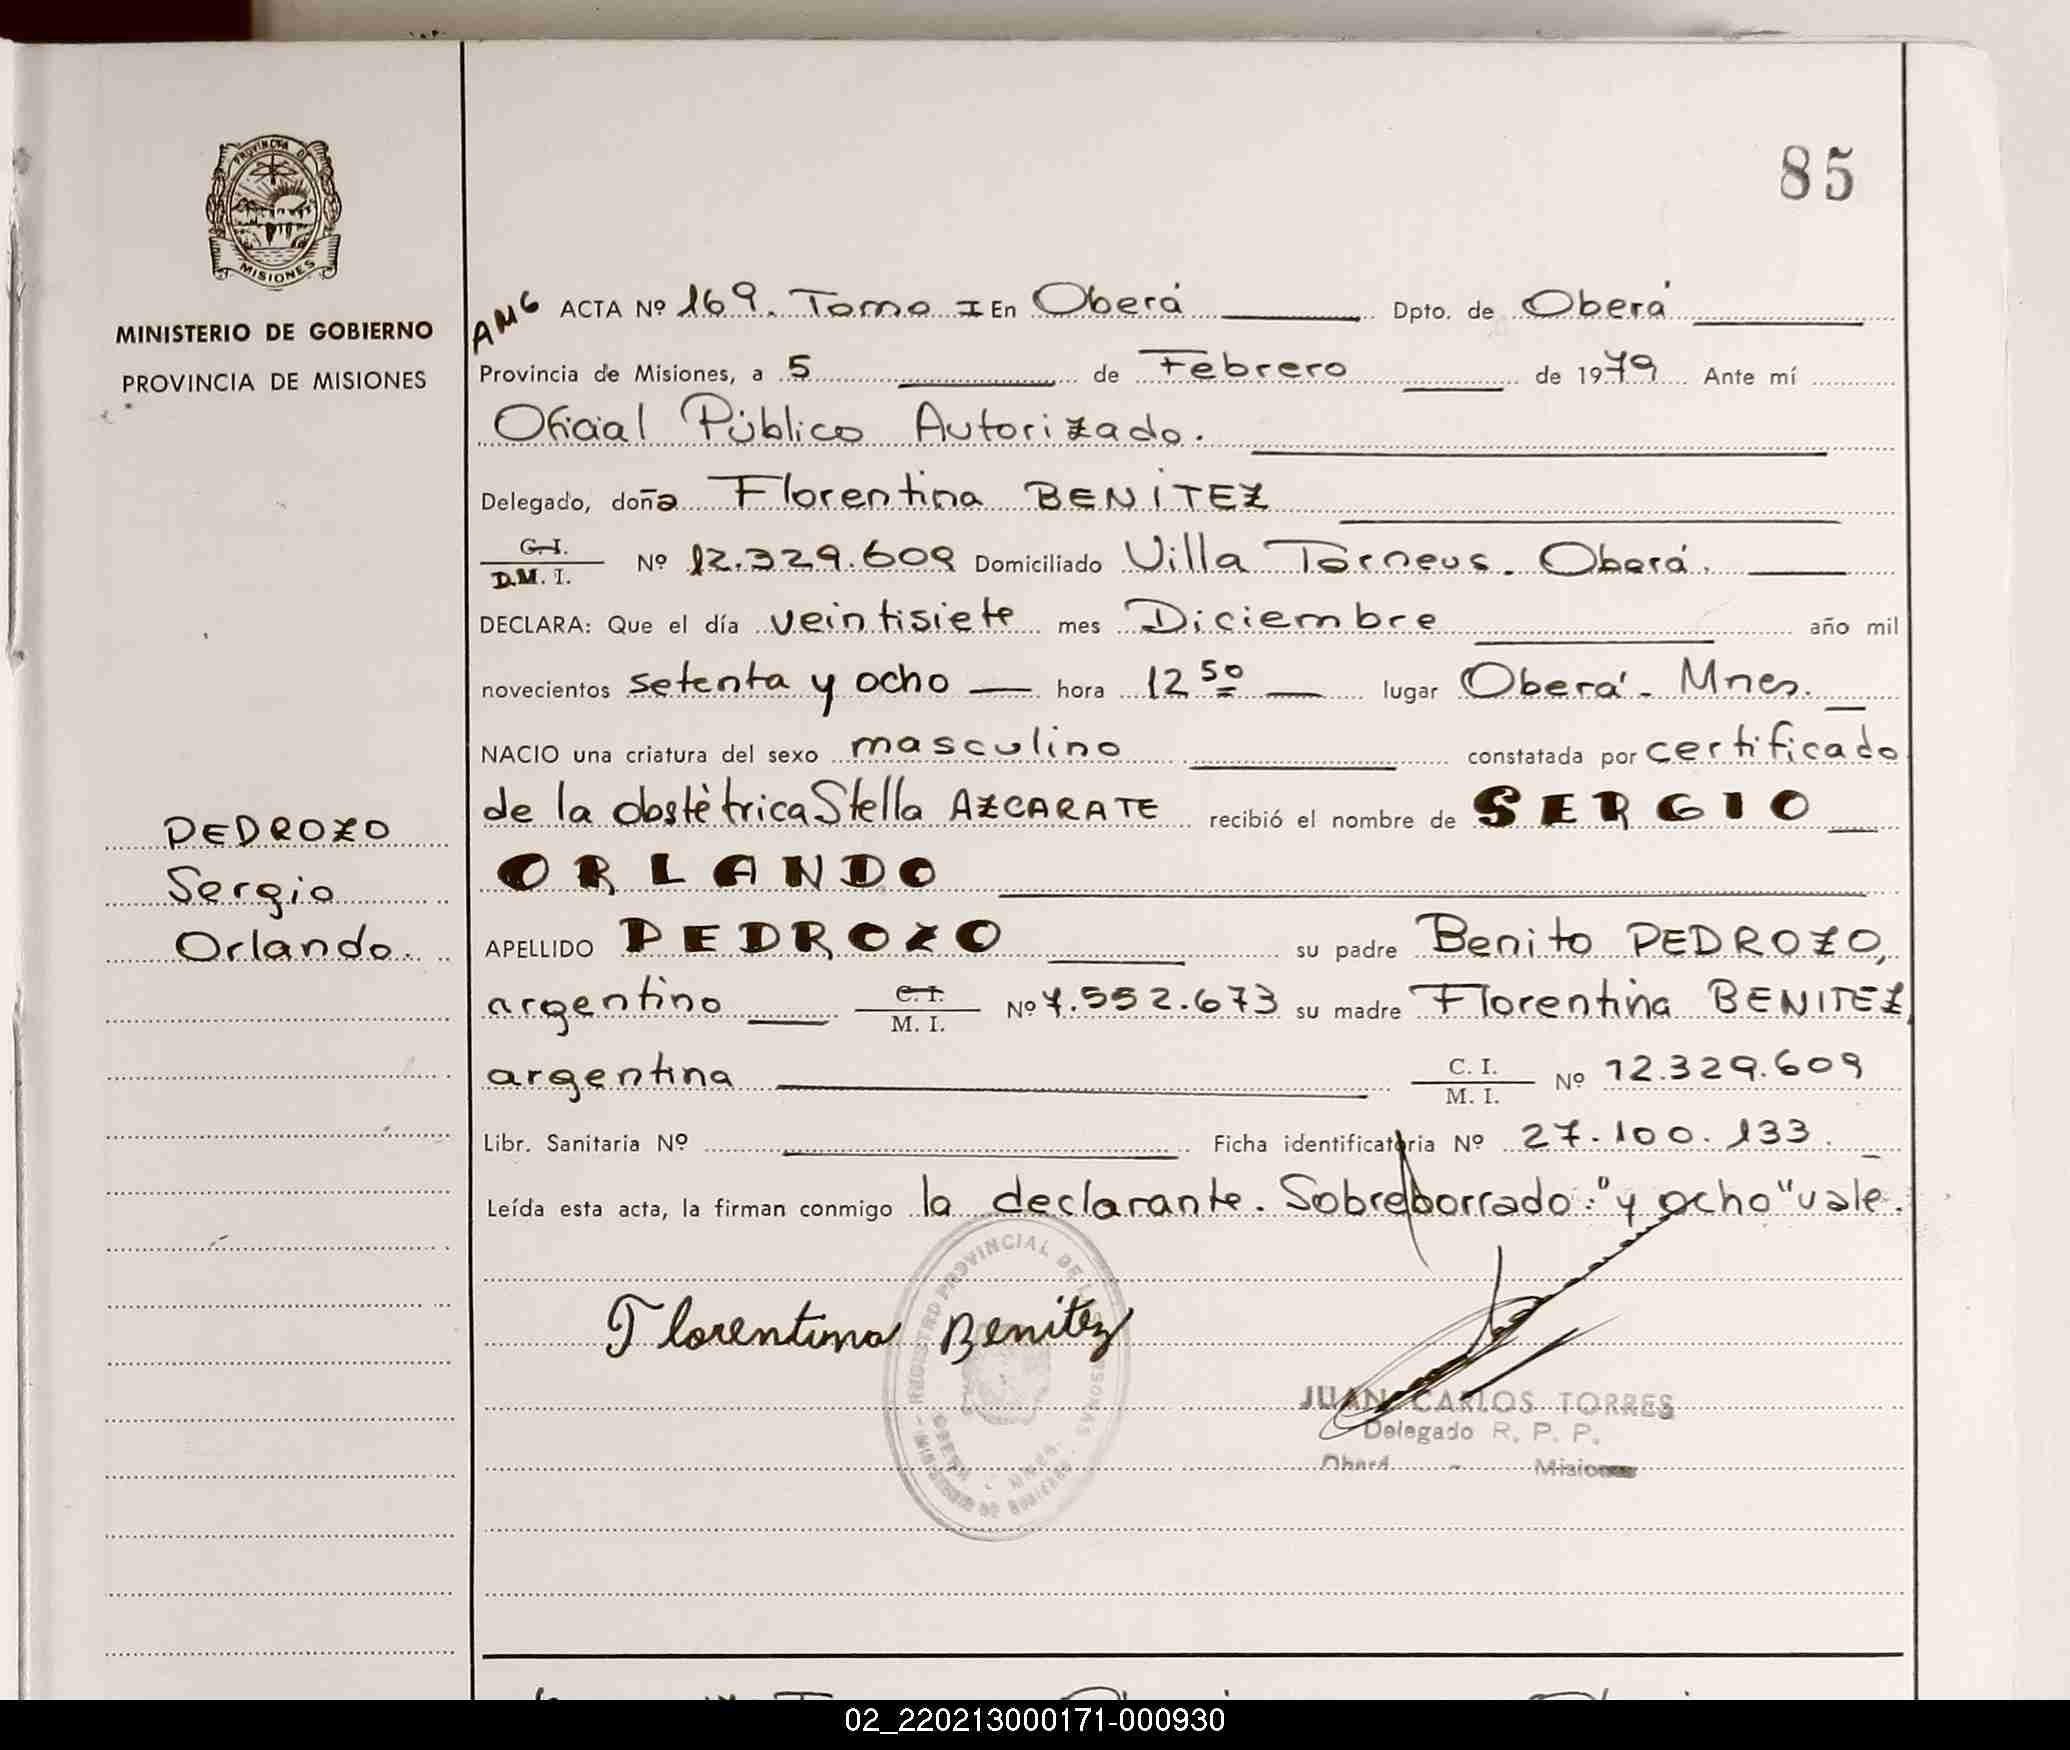 PROVINCIA DE
MISIONES
MINISTERIO DE GOBIERNO
PROVINCIA DE MISIONES
85
AMG ACTA Nº 169. Tomo I En Oberá Dpto. de Oberá
Provincia de Misiones, a 5 de Febrero de 1979 Ante mí
Oficial Público Autorizado.
Delegado, doña Florentina BENITEZ
C.I. D.M. I. Nº 12.329.609 Domiciliado Villa Torneus. Oberá.
DECLARA: Que el día veintisiete mes Diciembre año mil
novecientos setenta y ocho hora 12 50 lugar Oberá - Mnes.
NACIO una criatura del sexo masculino constatada por certificado
de la obstètrica Stella AZCARATE recibió el nombre de SERGIO
ORLANDO
APELLIDO PEDROZO su padre Benito PEDROZO,
argentino C. I. M. I. Nº 7.552.673 su madre Florentina BENITEZ,
argentina C. I. M. I. Nº 12.329.609
Libr. Sanitaria Nº Ficha identificatoria Nº 27.100.133.
Leída esta acta, la firman conmigo la declarante. Sobreborrado: "y ocho" vale.
PEDROZO
Sergio
Orlando.
Florentina Benitez
REGISTRO PROVINCIAL DE LAS PERSONAS
MINISTERIO DE GOBIERNO
OBERA - MNES.
JUAN CARLOS TORRES
Delegado R. P. P.
Oberá - Misiones
02_220213000171-000930